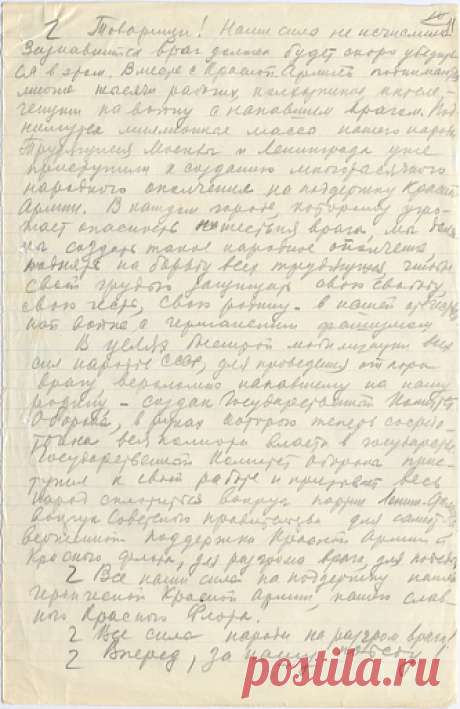 Товарищи! Наши силы неисчислимы.
Зазнавшийся враг должен будет скоро убедить-
ся в этом. Вместе с Красной Армией поднимаются
многие тысячи рабочих, колхозников, интелл-
игенции на войну с напавшим врагом. Под-
нимутся миллионные массы нашего народа.
Трудящиеся Москвы и Ленинграда уже
приступили к созданию многотысячного
народного ополчения на поддержку Красной
Армии. В каждом городе, которому угро-
жает опасность нашествия врага, мы долж-
ны создать такое народное ополчение
поднять на борьбу всех трудящихся, чтобы
своей грудью защищать свою свободу,
свою честь, свою родину - в нашей отечествен-
ной войне с германским фашизмом
В целях быстрой мобилизации всех
сил народов СССР, для проведения отпора
врагу, вероломно напавшему на нашу
родину, - создан Государственный Комитет
Обороны, в руках которого теперь сосредо-
точена вся полнота власти в государстве.
Государственный Комитет Обороны прис-
тупил к своей работе и призывает весь
народ сплотиться вокруг партии Ленина-Сталина
вокруг Советского правительства для самоот-
верженной поддержки Красной Армии и
Красного флота, для разгрома врага, для победы
Все наши силы на поддержку нашей
героической Красной Армии, нашего слав-
ного Красного Флота.
Все силы народа на разгром врага!
Вперед, за нашу победу
postila.ru